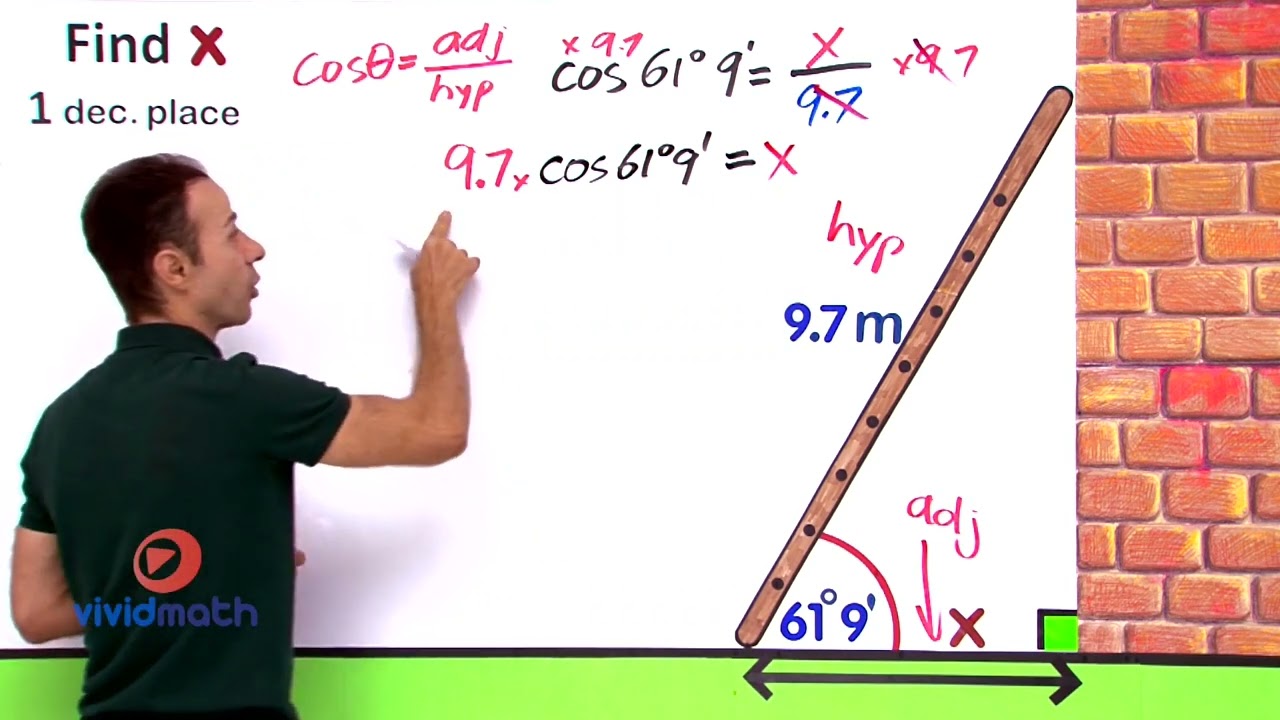 Find X
1 dec. place
cosθ = adj/hyp
× 9.7 cos 61° 9' = X/9.7 × 9.7
9.7 × cos 61° 9' = X
hyp
9.7 m
adj
61° 9' X
vividmath